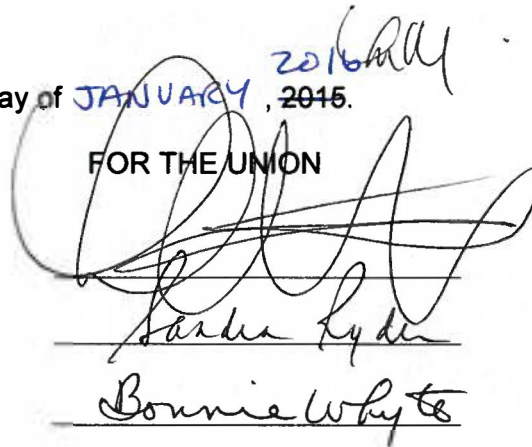 2016
ay of JANUARY , 2015.
FOR THE UNION
Sandra Ryder
Bonnie Whyte